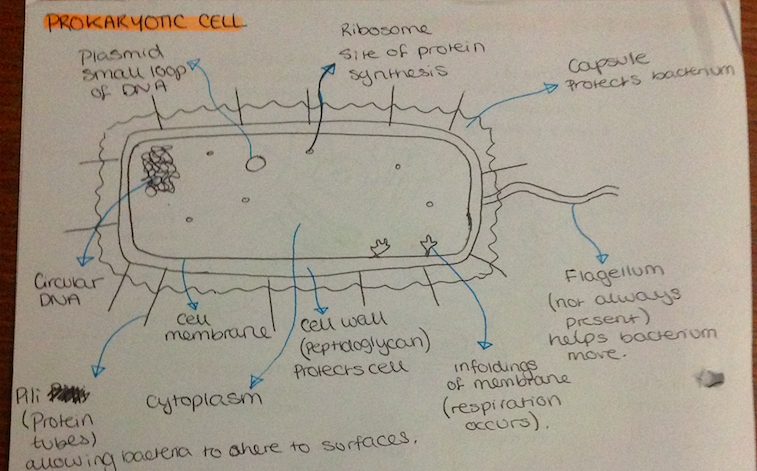 PROKARYOTIC CELL
Plasmid
small loop
of DNA
Ribosome
Site of protein
synthesis
Capsule
Protects bacterium
Circular
DNA
cell
membrane
cell wall
(peptidoglycan)
Protects cell
Flagellum
(not always
present)
helps bacterium
move.
Pili
(Protein
tubes)
allowing bacteria to ahere to surfaces.
cytoplasm
infoldings
of membrane
(respiration
occurs).